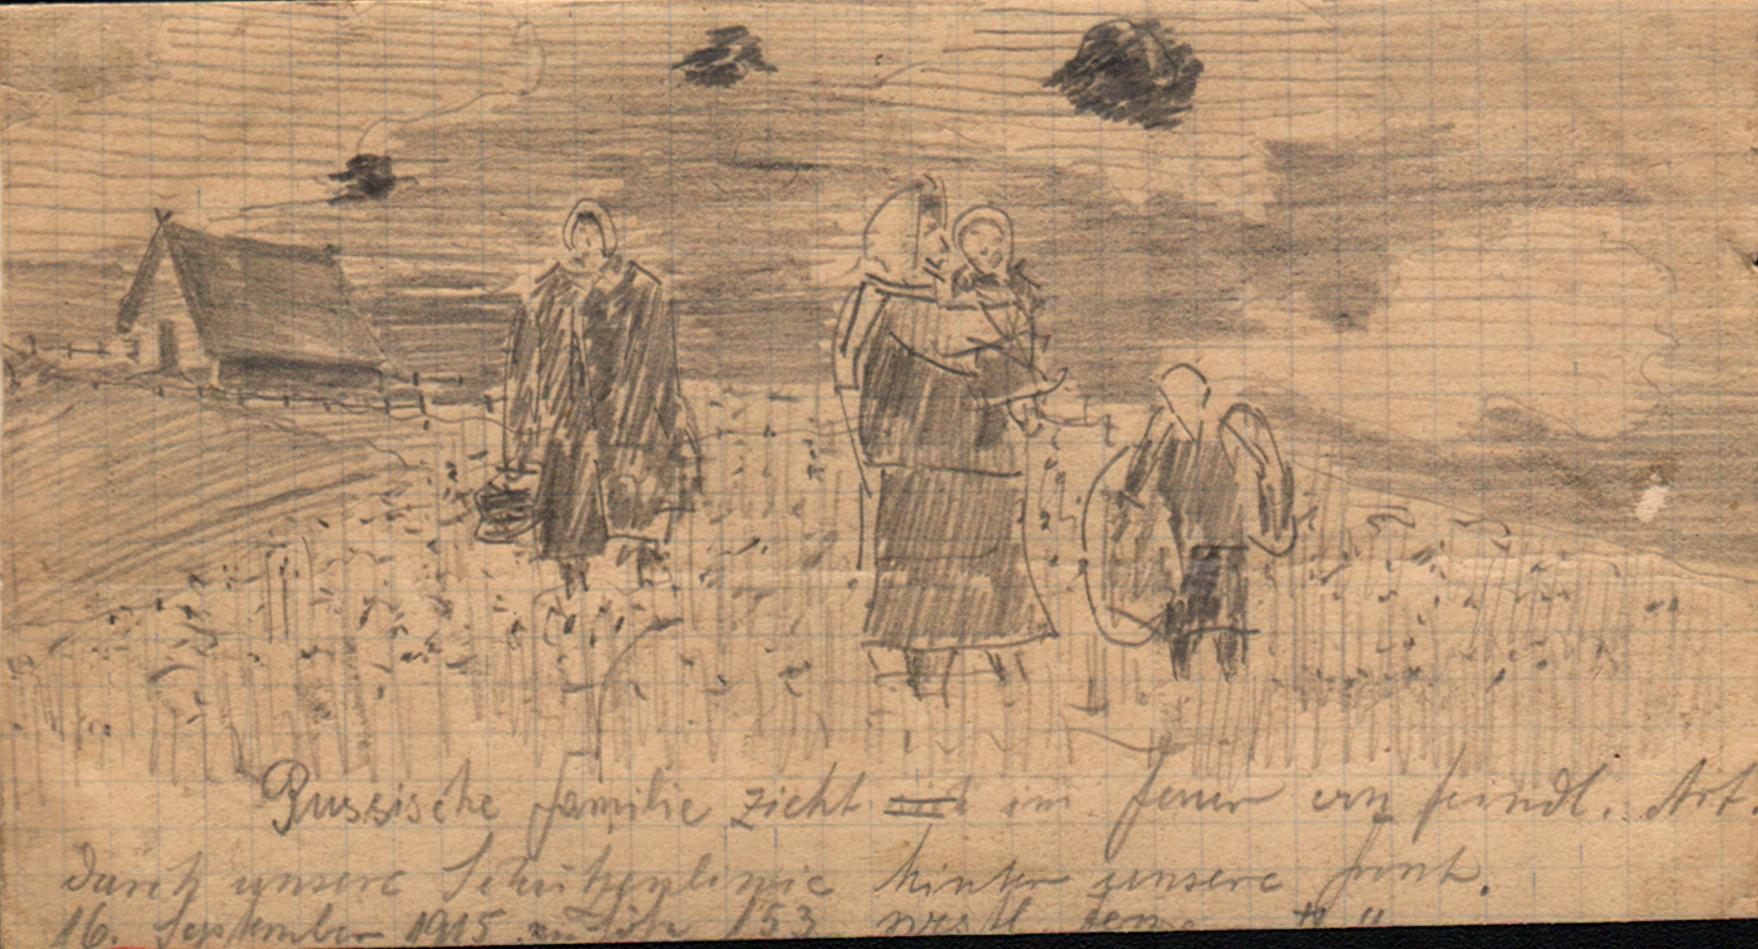 Russische Familie zieht im Feuer feindl. Art.
durch unsere Schützenlinie hinter unsere Front.
16. September 1915 Höhe 153 westl